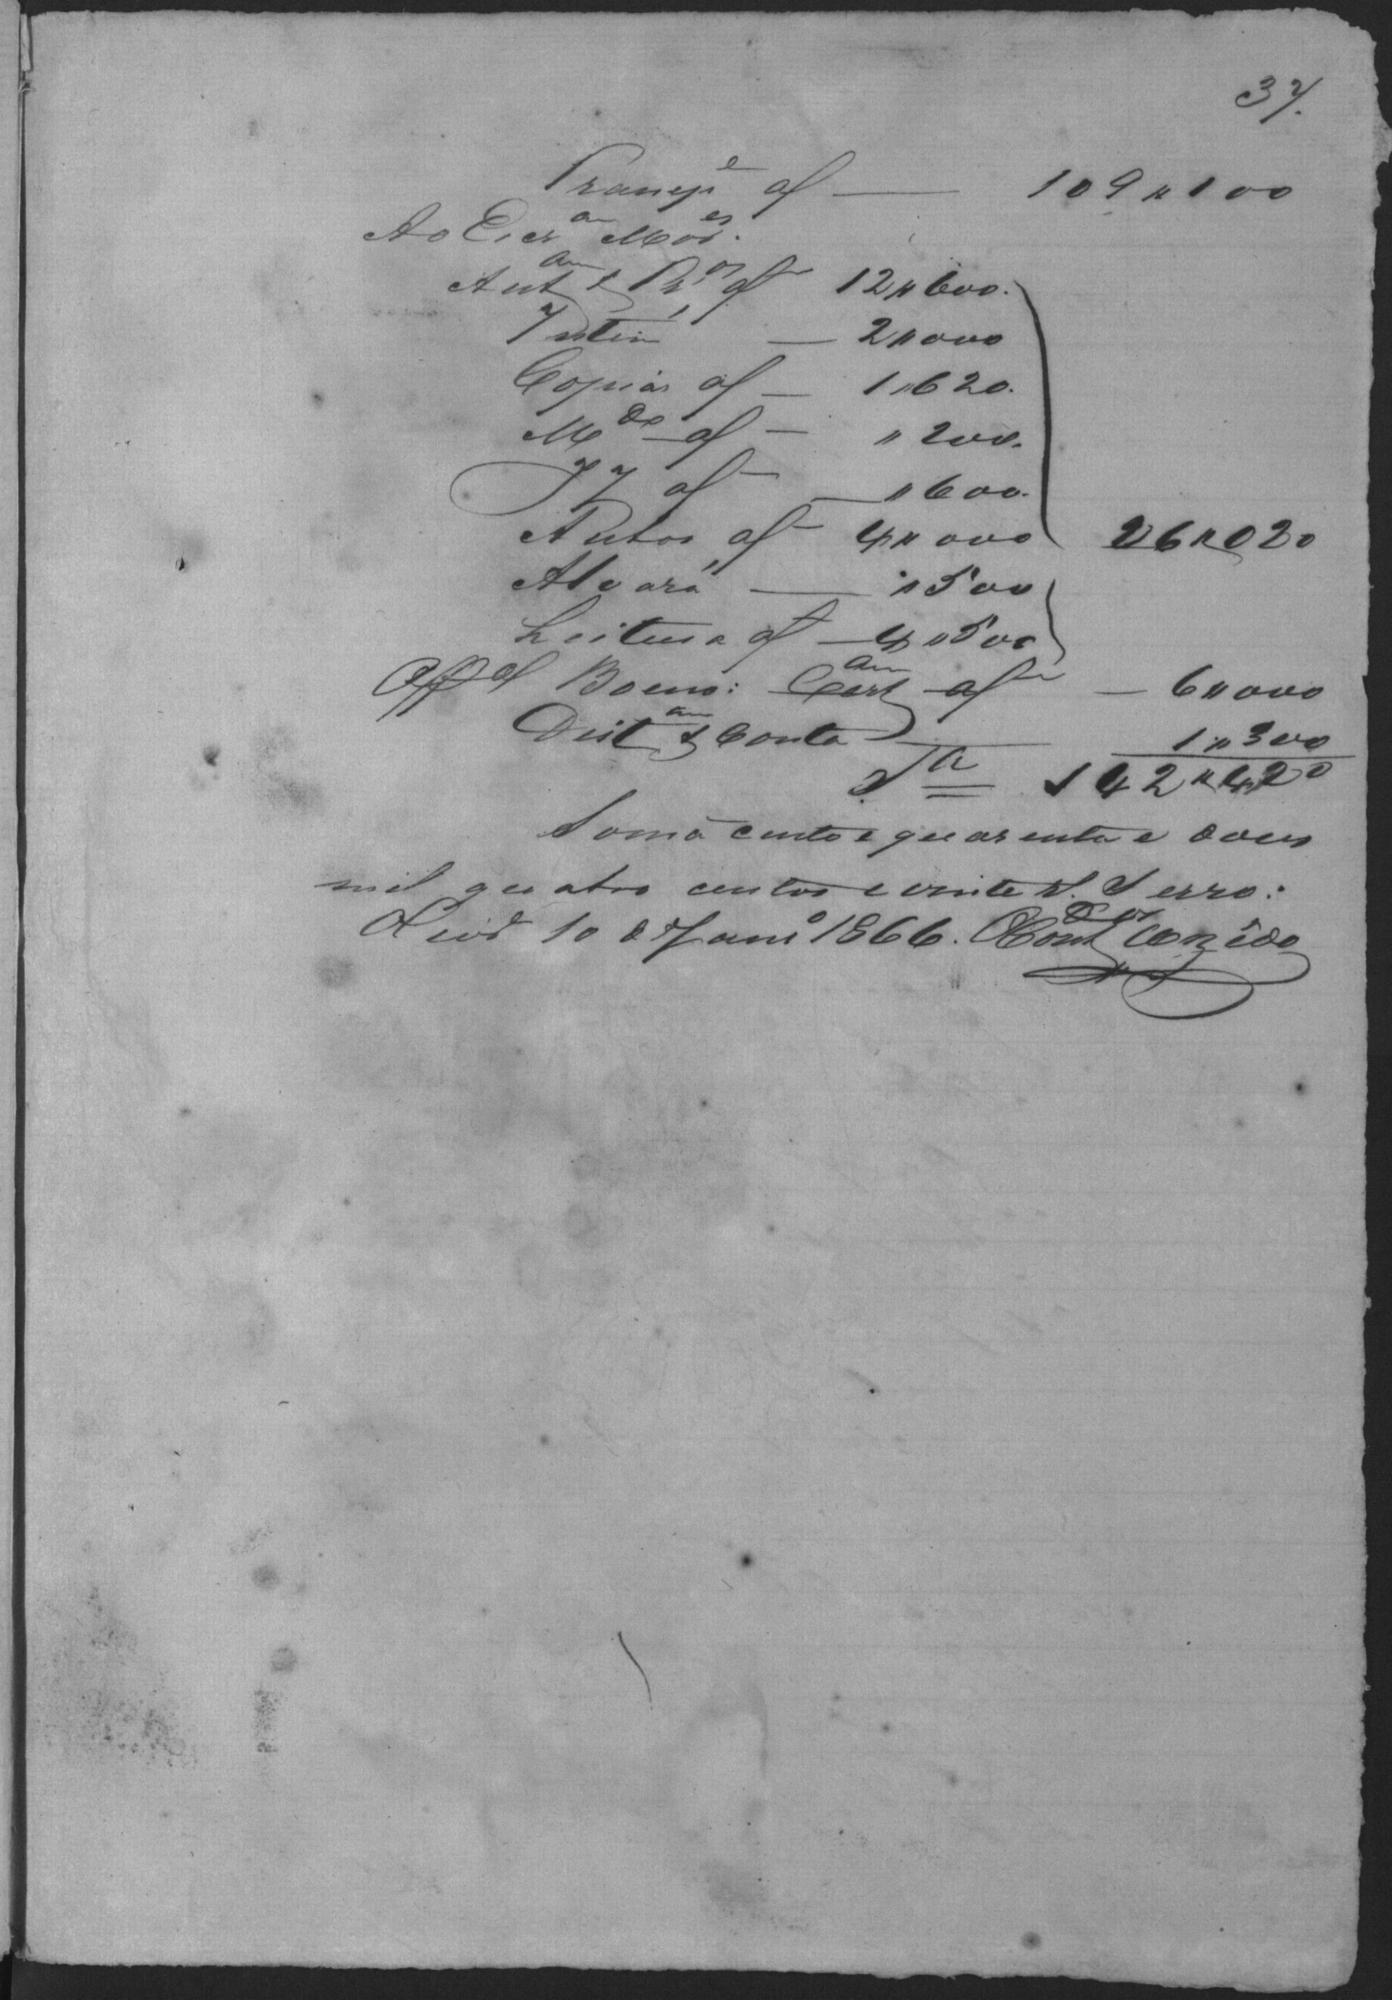 37.
Transp.e af — 109"100
Ao Escr.am Mor.es
Aut.am e Pr.os af 12"600.
Intim — 2"000
Copias af — 1"620.
M.do af — "200.
JJ af — "600.
Autos af 4"000 26"020
Alvará — "500
Leitura af — 4"500
Off.al Bueno: Cert.am af — 6"000
Dist.am e Conta 1"300
S.a 142"420
Somã cento e quarenta e dous
mil quatro centos e vinte r.s. S erro:
10 de Janr.o 1866. O Cont.dor